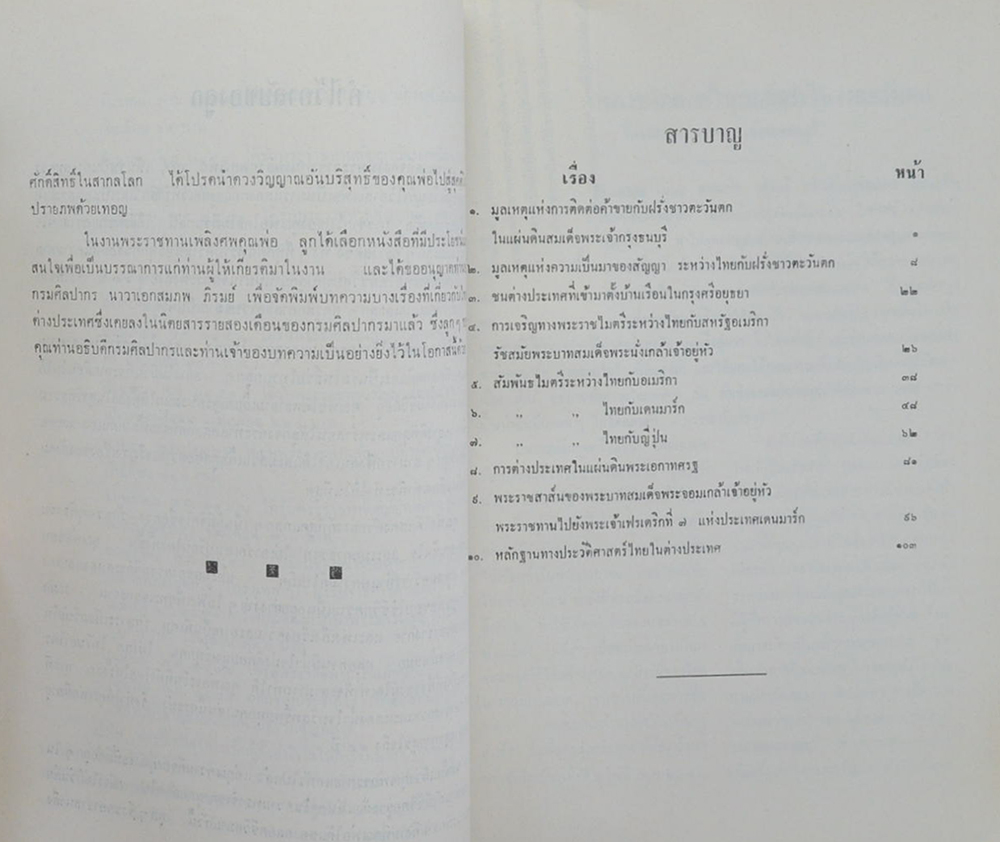 ศักดิ์สิทธิ์ในสากลโลก ได้โปรดนำดวงวิญญาณอันบริสุทธิ์ของคุณพ่อไปสู่สุคติ
ปรายภพด้วยเทอญ
ในงานพระราชทานเพลิงศพคุณพ่อ ลูกได้เลือกหนังสือที่มีประโยชน์
สนใจเพื่อเป็นบรรณาการแก่ท่านผู้ให้เกียรติมาในงาน และได้ขออนุญาตท่าน
กรมศิลปากร นาวาเอกสมภพ ภิรมย์ เพื่อจัดพิมพ์บทความบางเรื่องที่เกี่ยวกับ
ต่างประเทศซึ่งเคยลงในนิตยสารรายสองเดือนของกรมศิลปากรมาแล้ว ซึ่งลูกๆ
คุณท่านอธิบดีกรมศิลปากรและท่านเจ้าของบทความเป็นอย่างยิ่งไว้ในโอกาสนี้ด้วย
สารบาญ
เรื่อง หน้า
๑. มูลเหตุแห่งการติดต่อค้าขายกับฝรั่งชาวตะวันตก
ในแผ่นดินสมเด็จพระเจ้ากรุงธนบุรี ๑
๒. มูลเหตุแห่งความเป็นมาของสัญญา ระหว่างไทยกับฝรั่งชาวตะวันตก ๘
๓. ชนต่างประเทศที่เข้ามาตั้งบ้านเรือนในกรุงศรีอยุธยา ๒๒
๔. การเจริญทางพระราชไมตรีระหว่างไทยกับสหรัฐอเมริกา
รัชสมัยพระบาทสมเด็จพระนั่งเกล้าเจ้าอยู่หัว ๒๖
๕. สัมพันธไมตรีระหว่างไทยกับอเมริกา ๓๘
๖. ,, ,, ไทยกับเดนมาร์ก ๔๘
๗. ,, ,, ไทยกับญี่ปุ่น ๖๒
๘. การต่างประเทศในแผ่นดินพระเอกาทศรฐ ๘๑
๙. พระราชสาส์นของพระบาทสมเด็จพระจอมเกล้าเจ้าอยู่หัว
พระราชทานไปยังพระเจ้าเฟรเดริกที่ ๗ แห่งประเทศเดนมาร์ก ๙๖
๑๐. หลักฐานทางประวัติศาสตร์ไทยในต่างประเทศ ๑๐๓